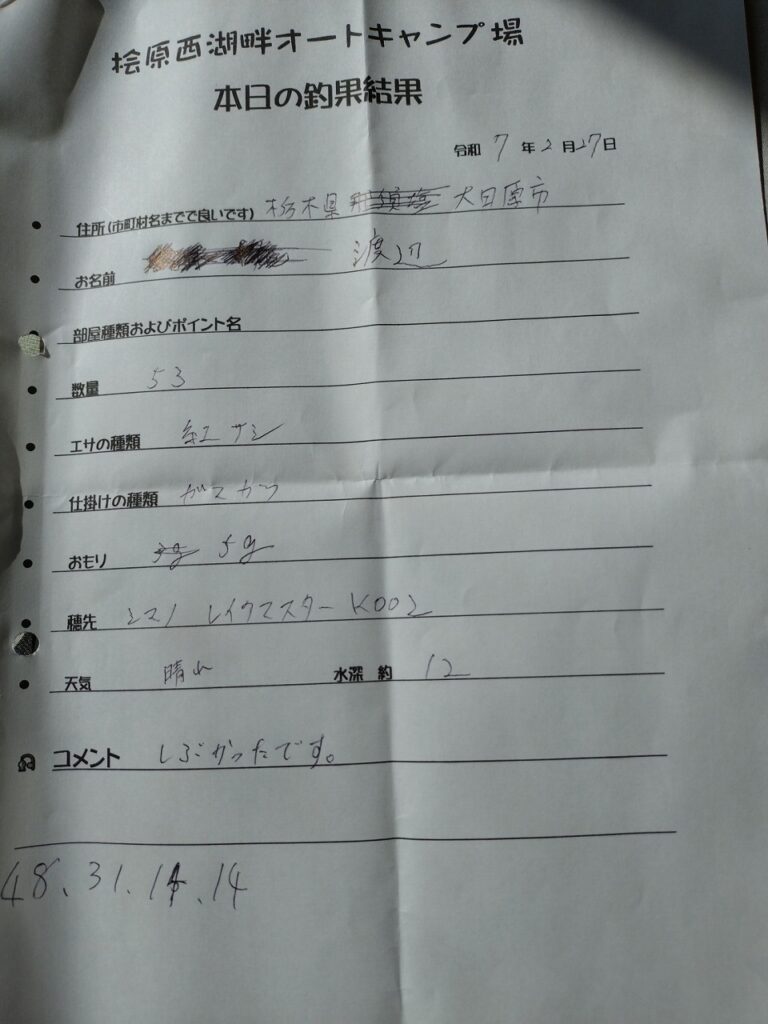 桧原西湖畔オートキャンプ場
本日の釣果結果
令和 7 年 2 月 27 日
住所(市町村名までで良いです) 栃木県 大田原市
お名前 渡辺
部屋種類およびポイント名
数量 53
エサの種類 紅サシ
仕掛けの種類 がまかつ
おもり 5g
穂先 シマノ レイクマスター K002
天気 晴れ 水深 約 12
コメント しぶかったです。
48、31、14、14